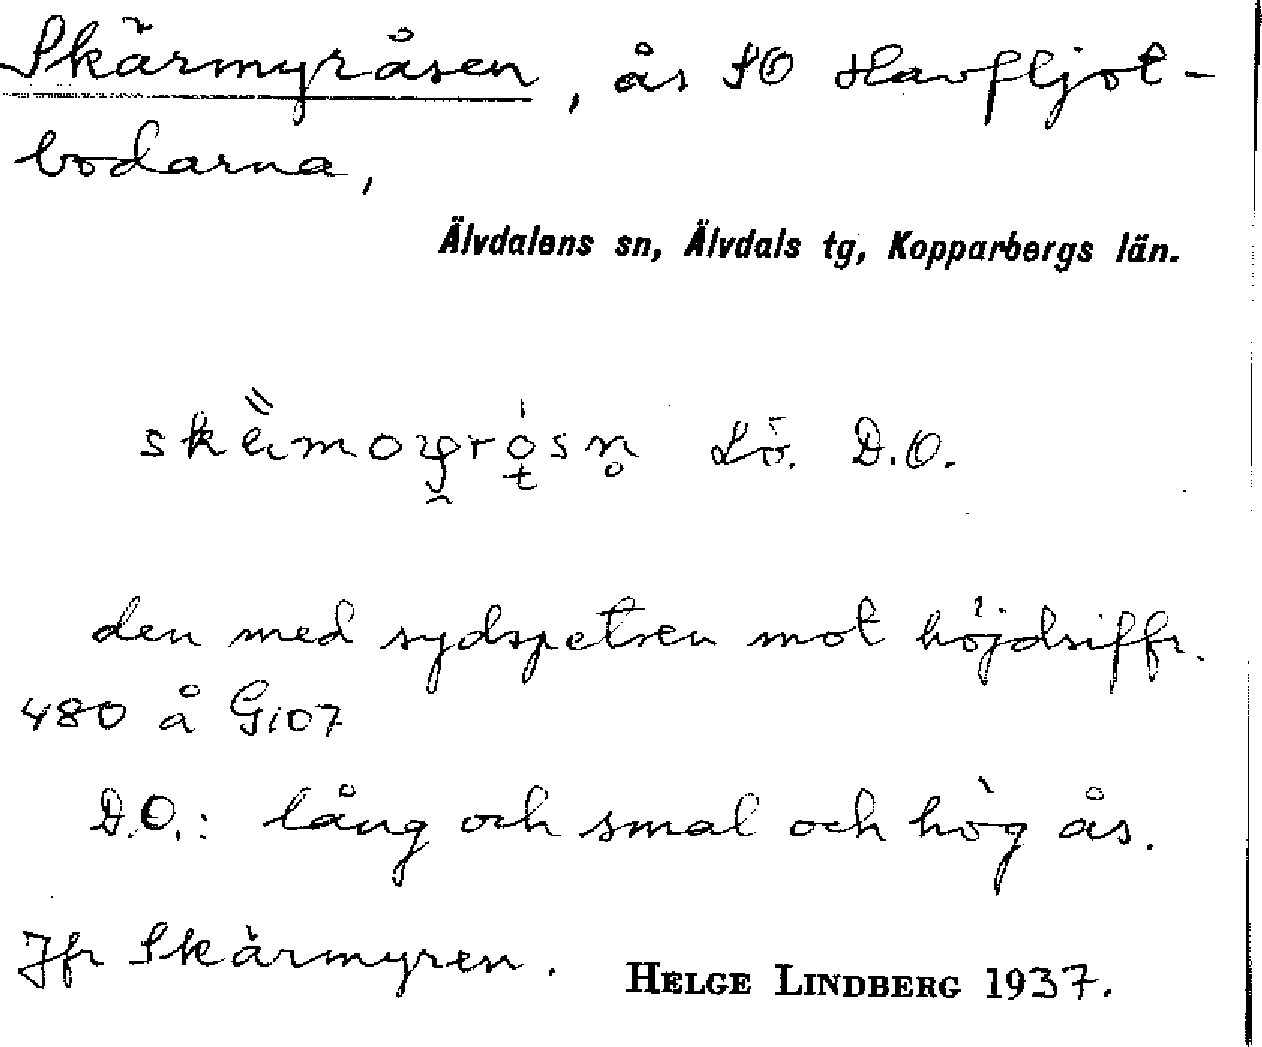 Skärmyråsen, ås SO Havfljot-
bodarna,
Älvdalens sn, Älvdals tg, Kopparbergs län.
Lö. D.O.
den med sydspetsen mot höjdsiffr.
480 å G107
D.O.: lång och smal och hög ås.
Jfr Skärmyren. HELGE LINDBERG 1937.